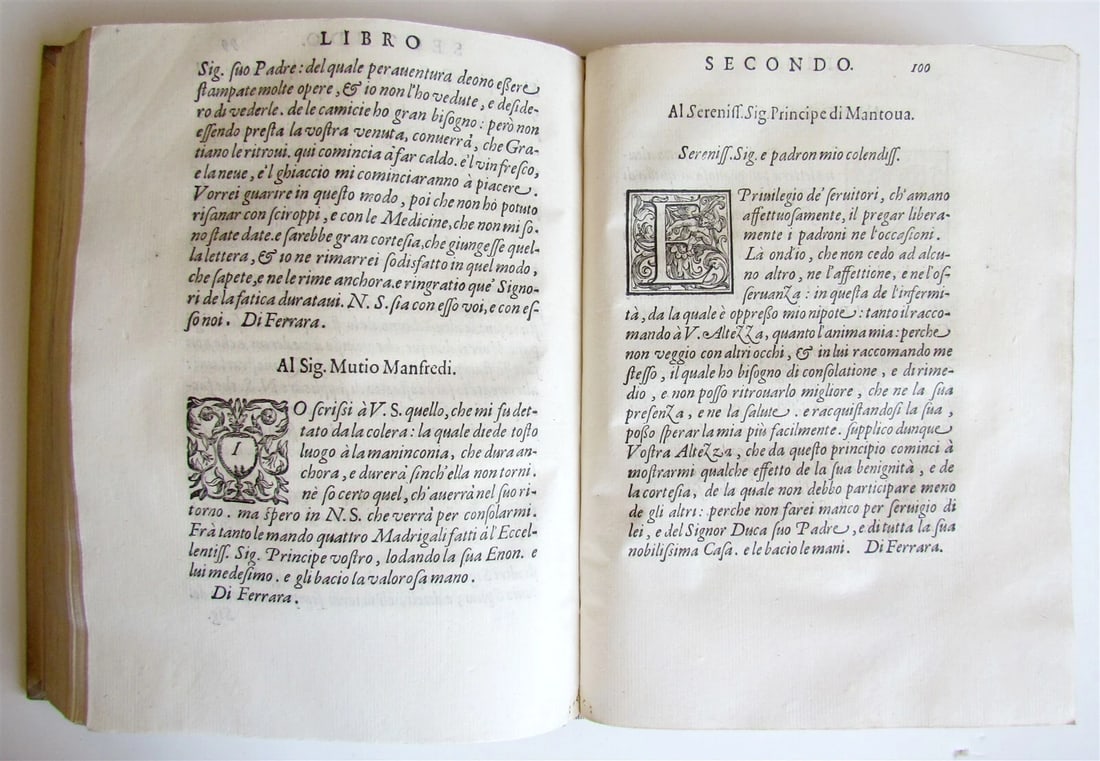 LIBRO
Sig. ſuo Padre: del quale per auentura deono eßere
ſtampate molte opere, & io non l'ho vedute, e deſide-
ro di vederle. de le camicie ho gran biſogno: però non
eſſendo preſta la voſtra venuta, conuerrà, che Gra-
tiano le ritroui. qui comincia à far caldo. e'l vin freſco,
e la neue, e'l ghiaccio mi cominciaranno à piacere.
Vorrei guarire in queſto modo, poi che non hò potuto
riſanar con ſciroppi, e con le Medicine, che non mi ſo-
no ſtate date. e ſarebbe gran corteſia, che giungeſſe quel-
la lettera, & io ne rimarrei ſodisfatto in quel modo,
che ſapete, e ne le rime anchora. e ringratio que' Signo-
ri de la fatica durataui. N. S. ſia con eſſo voi, e con eſ-
ſo noi. Di Ferrara.
Al Sig. Mutio Manfredi.
IO ſcriſsi à V. S. quello, che mi fu det-
tato da la colera: la quale diede toſto
luogo à la maninconia, che dura an-
chora, e durerà ſinch'ella non torni.
nè ſo certo quel, ch'auerrà nel ſuo ri-
torno. ma ſpero in N. S. che verrà per conſolarmi.
Frà tanto le mando quattro Madrigali fatti à l'Eccel-
lentiſſ. Sig. Principe voſtro, lodando la ſua Enon. e
lui medeſimo. e gli bacio la valoroſa mano.
Di Ferrara.
SECONDO. 100
Al Sereniſſ. Sig. Principe di Mantoua.
Sereniſſ. Sig. e padron mio colendiſſ.
E Priuilegio de' ſeruitori, ch'amano
affettuoſamente, il pregar libera-
mente i padroni ne l'occaſioni.
Là ond'io, che non cedo ad alcu-
no altro, ne l'affettione, e ne l'oſ-
ſeruanza: in queſta de l'infermi-
tà, da la quale è oppreßo mio nipote: tanto il racco-
mando à V. Altezza, quanto l'anima mia: perche
non veggio con altri occhi, & in lui raccomando me
ſteſſo, il quale ho biſogno di conſolatione, e di rime-
dio, e non poſſo ritrouarlo migliore, che ne la ſua
preſenza, e ne la ſalute. e racquiſtandoſi la ſua,
poßo ſperar la mia più facilmente. ſupplico dunque
Voſtra Altezza, che da queſto principio cominci à
moſtrarmi qualche effetto de la ſua benignità, e de
la corteſia, de la quale non debbo participare meno
de gli altri: perche non farei manco per ſeruigio di
lei, e del Signor Duca ſuo Padre, e di tutta la ſua
nobiliſsima Caſa. e le bacio le mani. Di Ferrara.